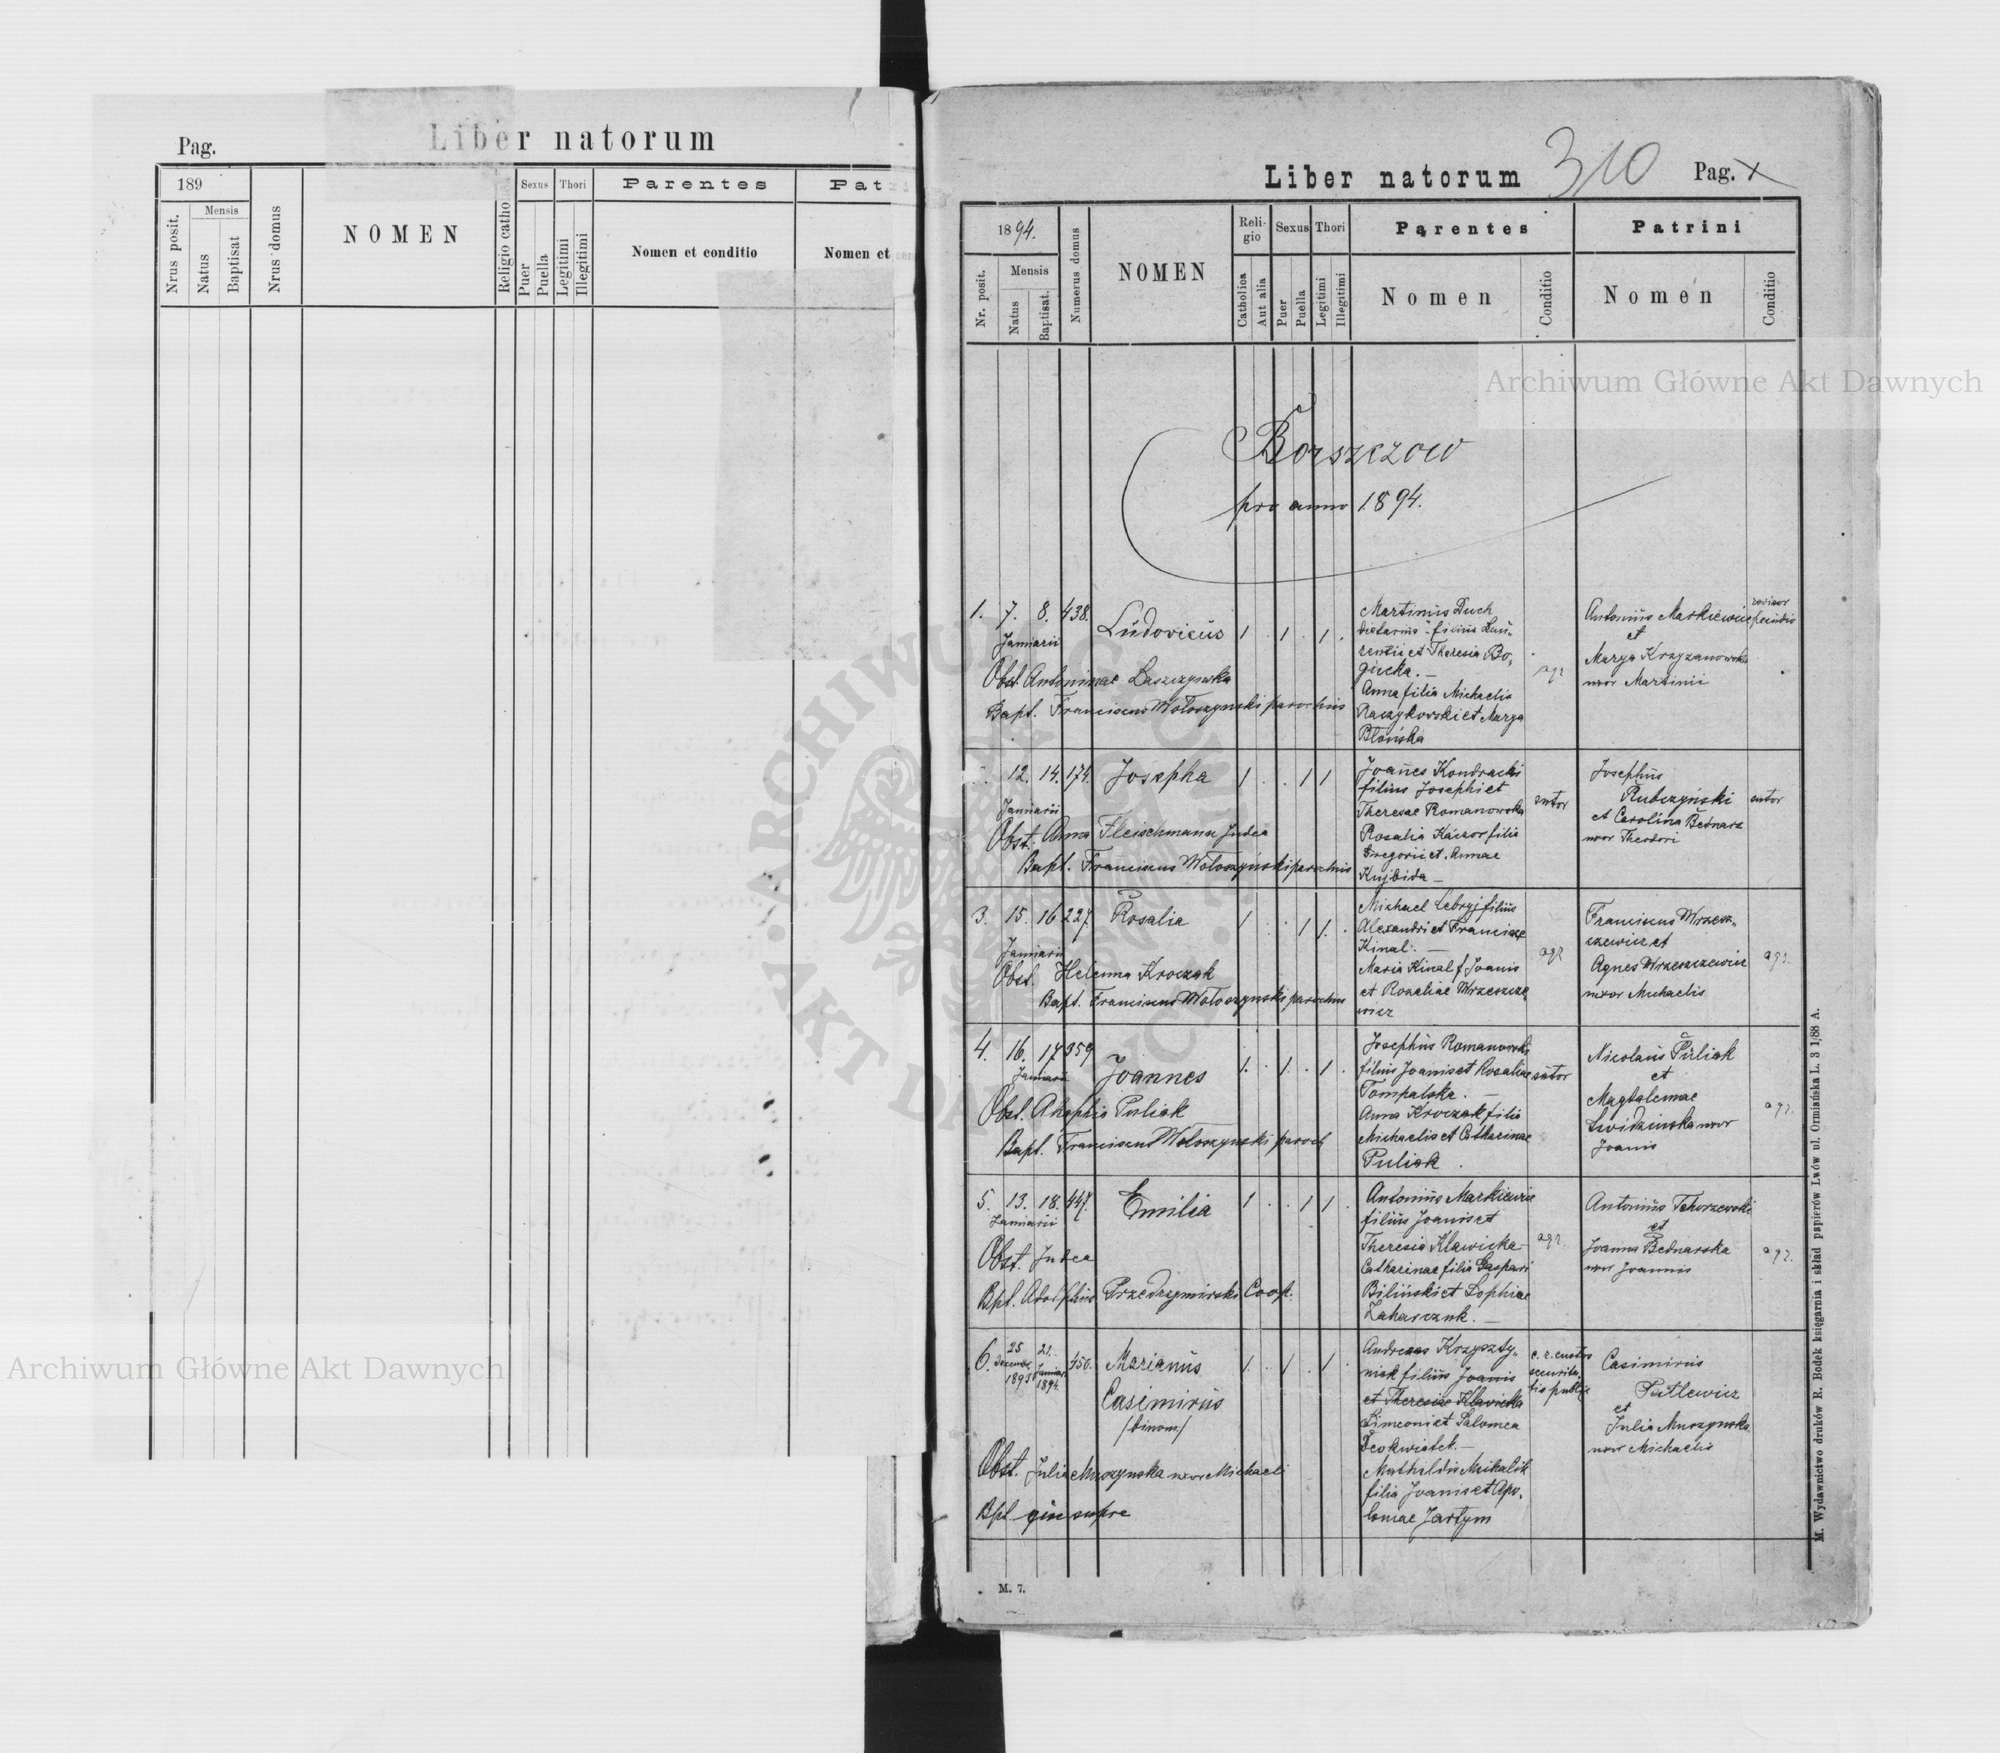 Pag.
Liber natorum
189
Mensis
Nrus posit.
Natus
Baptisat
Nrus domus
NOMEN
Religio catho
Sexus
Thori
Puer
Puella
Legitimi
Illegitimi
Parentes
Nomen et conditio
Nomen et
Liber natorum
310
Pag.
1894.
Mensis
Nr. posit.
Natus
Baptisat.
Numerus domus
NOMEN
Religio
Catholica
Aut alia
Sexus
Puer
Puella
Thori
Legitimi
Illegitimi
Parentes
Nomen
Conditio
Patrini
Nomen
Conditio
Borszczow
pro anno 1894.
1. 7. 8. 438. Ludovicus 1 . 1 . 1 .
Januarii
Obst. Antoninae Laszczywka
Bapt. Franciscus Wołoszynski parochus
Martinus Duch
filius Lau-
rentii et Theresia Bo-
giecka. —
Anna filia Michaelis
Raczykowski et Marya
Błońska
agr
Antonius Markiewicz
et
Marya Krzyzanowska
uxor Martinii
12. 14. 174. Josepha 1 . . 1 1
Januarii
Obst. Anna Fleischmann Judea
Bapt. Franciscus Wołoszyński parochus
Joannes Kondracki
filius Josephi et
Theresae Romanowska
Rosalia Kaczor filia
Gregorii et Annae
Kujbida —
sutor
Josephus
Rubczyński
et Carolina Bednarz
uxor Theodori
sutor
3. 15. 16 227. Rosalia 1 . . 1 1 .
Januarii
Obst. Helenna Kroczak
Bapt. Franciscus Wołoszynski parochus
Michael Cebryj filius
Alexandri et Franciscae
Kinal. —
Maria Kinal f Joanis
et Rosaliae Wrzeszcze
wicz
agr
Franciscus Wrzesz-
czewicz et
Agnes Wrzeszczewicz
uxor Michaelis
agr.
4. 16. 17 359 Joannes 1 . 1 . 1 .
Januarii
Obst. Puliak
Bapt. Franciscus Wołoszynski paroch
Josephus Romanowski
filius Joanis et Rosaliae
Tompalska. —
Anna Kroczak filia
Michaelis et Catharinae
Puliak.
sutor
Nicolaus Puliak
et
Magdalenae
Swidzinska uxor
Joanis
agr.
5. 13. 18. 447. Emilia 1 . . 1 1 .
Januarii
Obst. Judea
Bpt. Adolphus Przedrzymirski Coop.
Antonius Markiewicz
filius Joanis et
Theresia Klawicka —
Catharinae filia Gaspari
Biliński et Sophiae
Zaharczuk. —
agr.
Antonius Tchorzewski
et
Joanna Bednarska
uxor Joannis
agr.
6. 25 21. 450. Marianus 1 . 1 . 1 .
Decembr. Januar.
1893 1894.
Casimirus
/binom/
Obst. Julia Muszynska uxor Michaeli
Bpt qui supra
Andreas Krzyszty-
niak filius Joanis
et Theresiae Klavicka
Simeoni et Salomea
Dziokwiatek —
Mathildis Mikalik
filia Joanis et Apo-
loniae Jartym
c. r. custos
securita
tis public
Casimirus
Putlewicz
et
Julia Muszynska
uxor Michaelis
M. 7.
M. Wydawnictwo druków R. Bodek księgarnia i skład papierów Lwów ul. Ormiańska L. 3 1/88 A.
Archiwum Główne Akt Dawnych
Archiwum Główne Akt Dawnych
ARCHIWUM GŁÓWNE AKT DAWNYCH